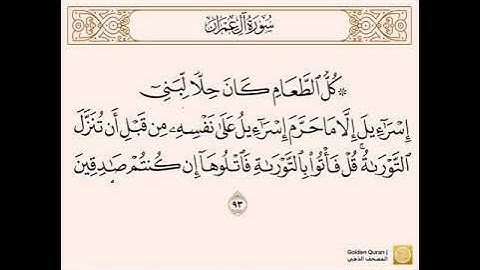 سُورَةُ آلِ عِمْرَان
۞ كُلُّ ٱلطَّعَامِ كَانَ حِلًّا لِّبَنِىٓ
إِسْرَٰٓءِيلَ إِلَّا مَا حَرَّمَ إِسْرَٰٓءِيلُ عَلَىٰ نَفْسِهِۦ مِن قَبْلِ أَن تُنَزَّلَ
ٱلتَّوْرَىٰةُ ۗ قُلْ فَأْتُوا۟ بِٱلتَّوْرَىٰةِ فَٱتْلُوهَآ إِن كُنتُمْ صَٰدِقِينَ
٩٣
Golden Quran |
المصحف الذهبي